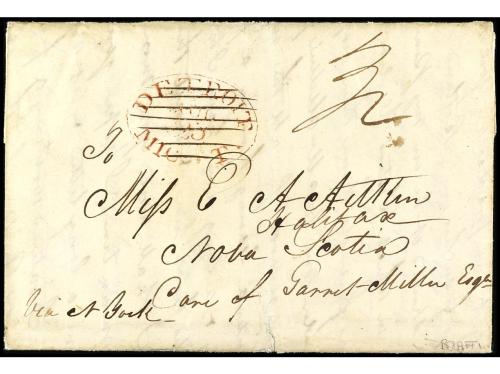 DETROIT
MICH. T
To
Miss E A Aitkin
Halifax
Nova Scotia
Care of Garret Miller Esqr
Via N York